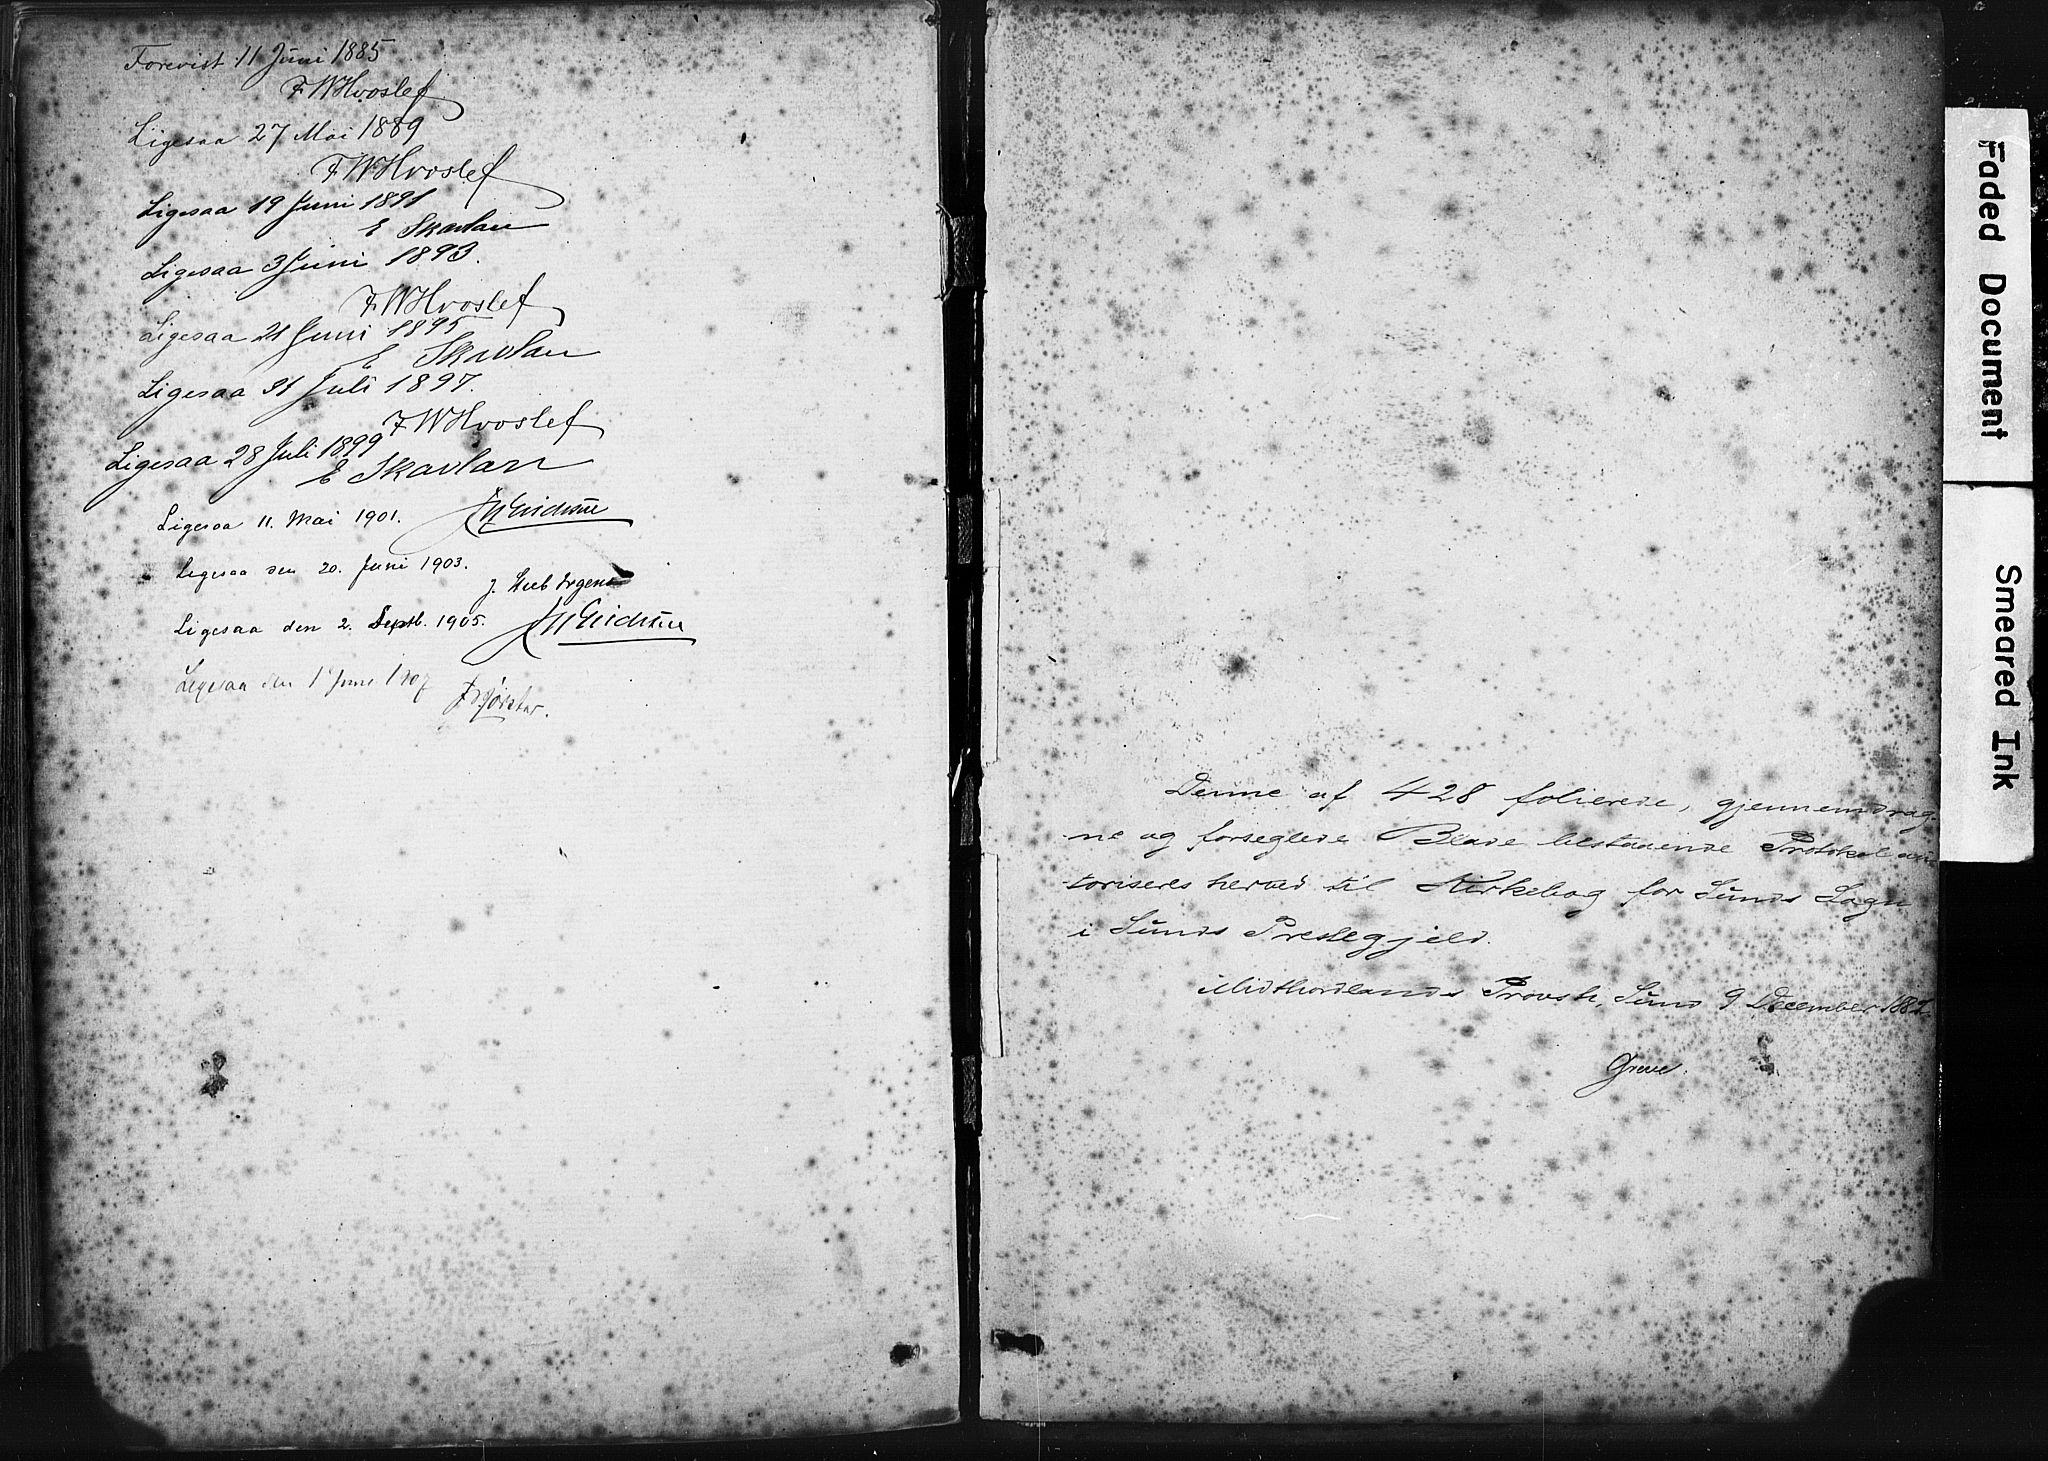 Forevist 11 Juni 1885
F W Hvoslef
Ligesaa 27 Mai 1889
F W Hvoslef
Ligesaa 19 Juni 1891
E Skavlan
Ligesaa 3 Juni 1893.
F W Hvoslef
Ligesaa 21 Juni 1895
E Skavlan
Ligesaa 21 Juli 1897.
F W Hvoslef
Ligesaa 28 Juli 1899
E Skavlan
Ligesaa 11. Mai 1901.
Ligesaa den 20. Juni 1903.
J.
Ligesaa den 2. Septb. 1905.
Ligesaa den 1 Juni 1907
Denne af 428 folierede, gjennemdrag
ne og forseglede Blade bestaaende Protokol au
toriseres herved til Kirkebog for Sunds Sogn
i Sunds Prestegjeld.
Midthordlands Provsti, Sund 9 December 188
Greve.
Faded Document
Smeared Ink